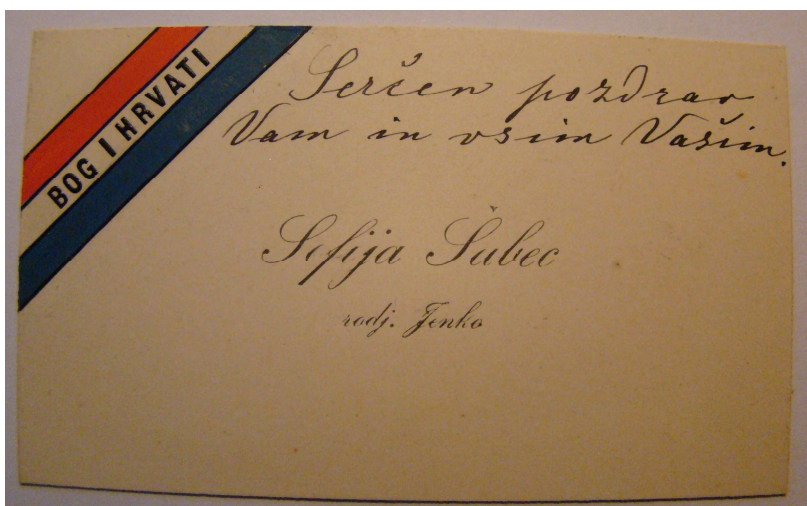 BOG I HRVATI
Serčen pozdrav
Vam in vsim Vašim.
Sofija Šubec
rodj. Jenko